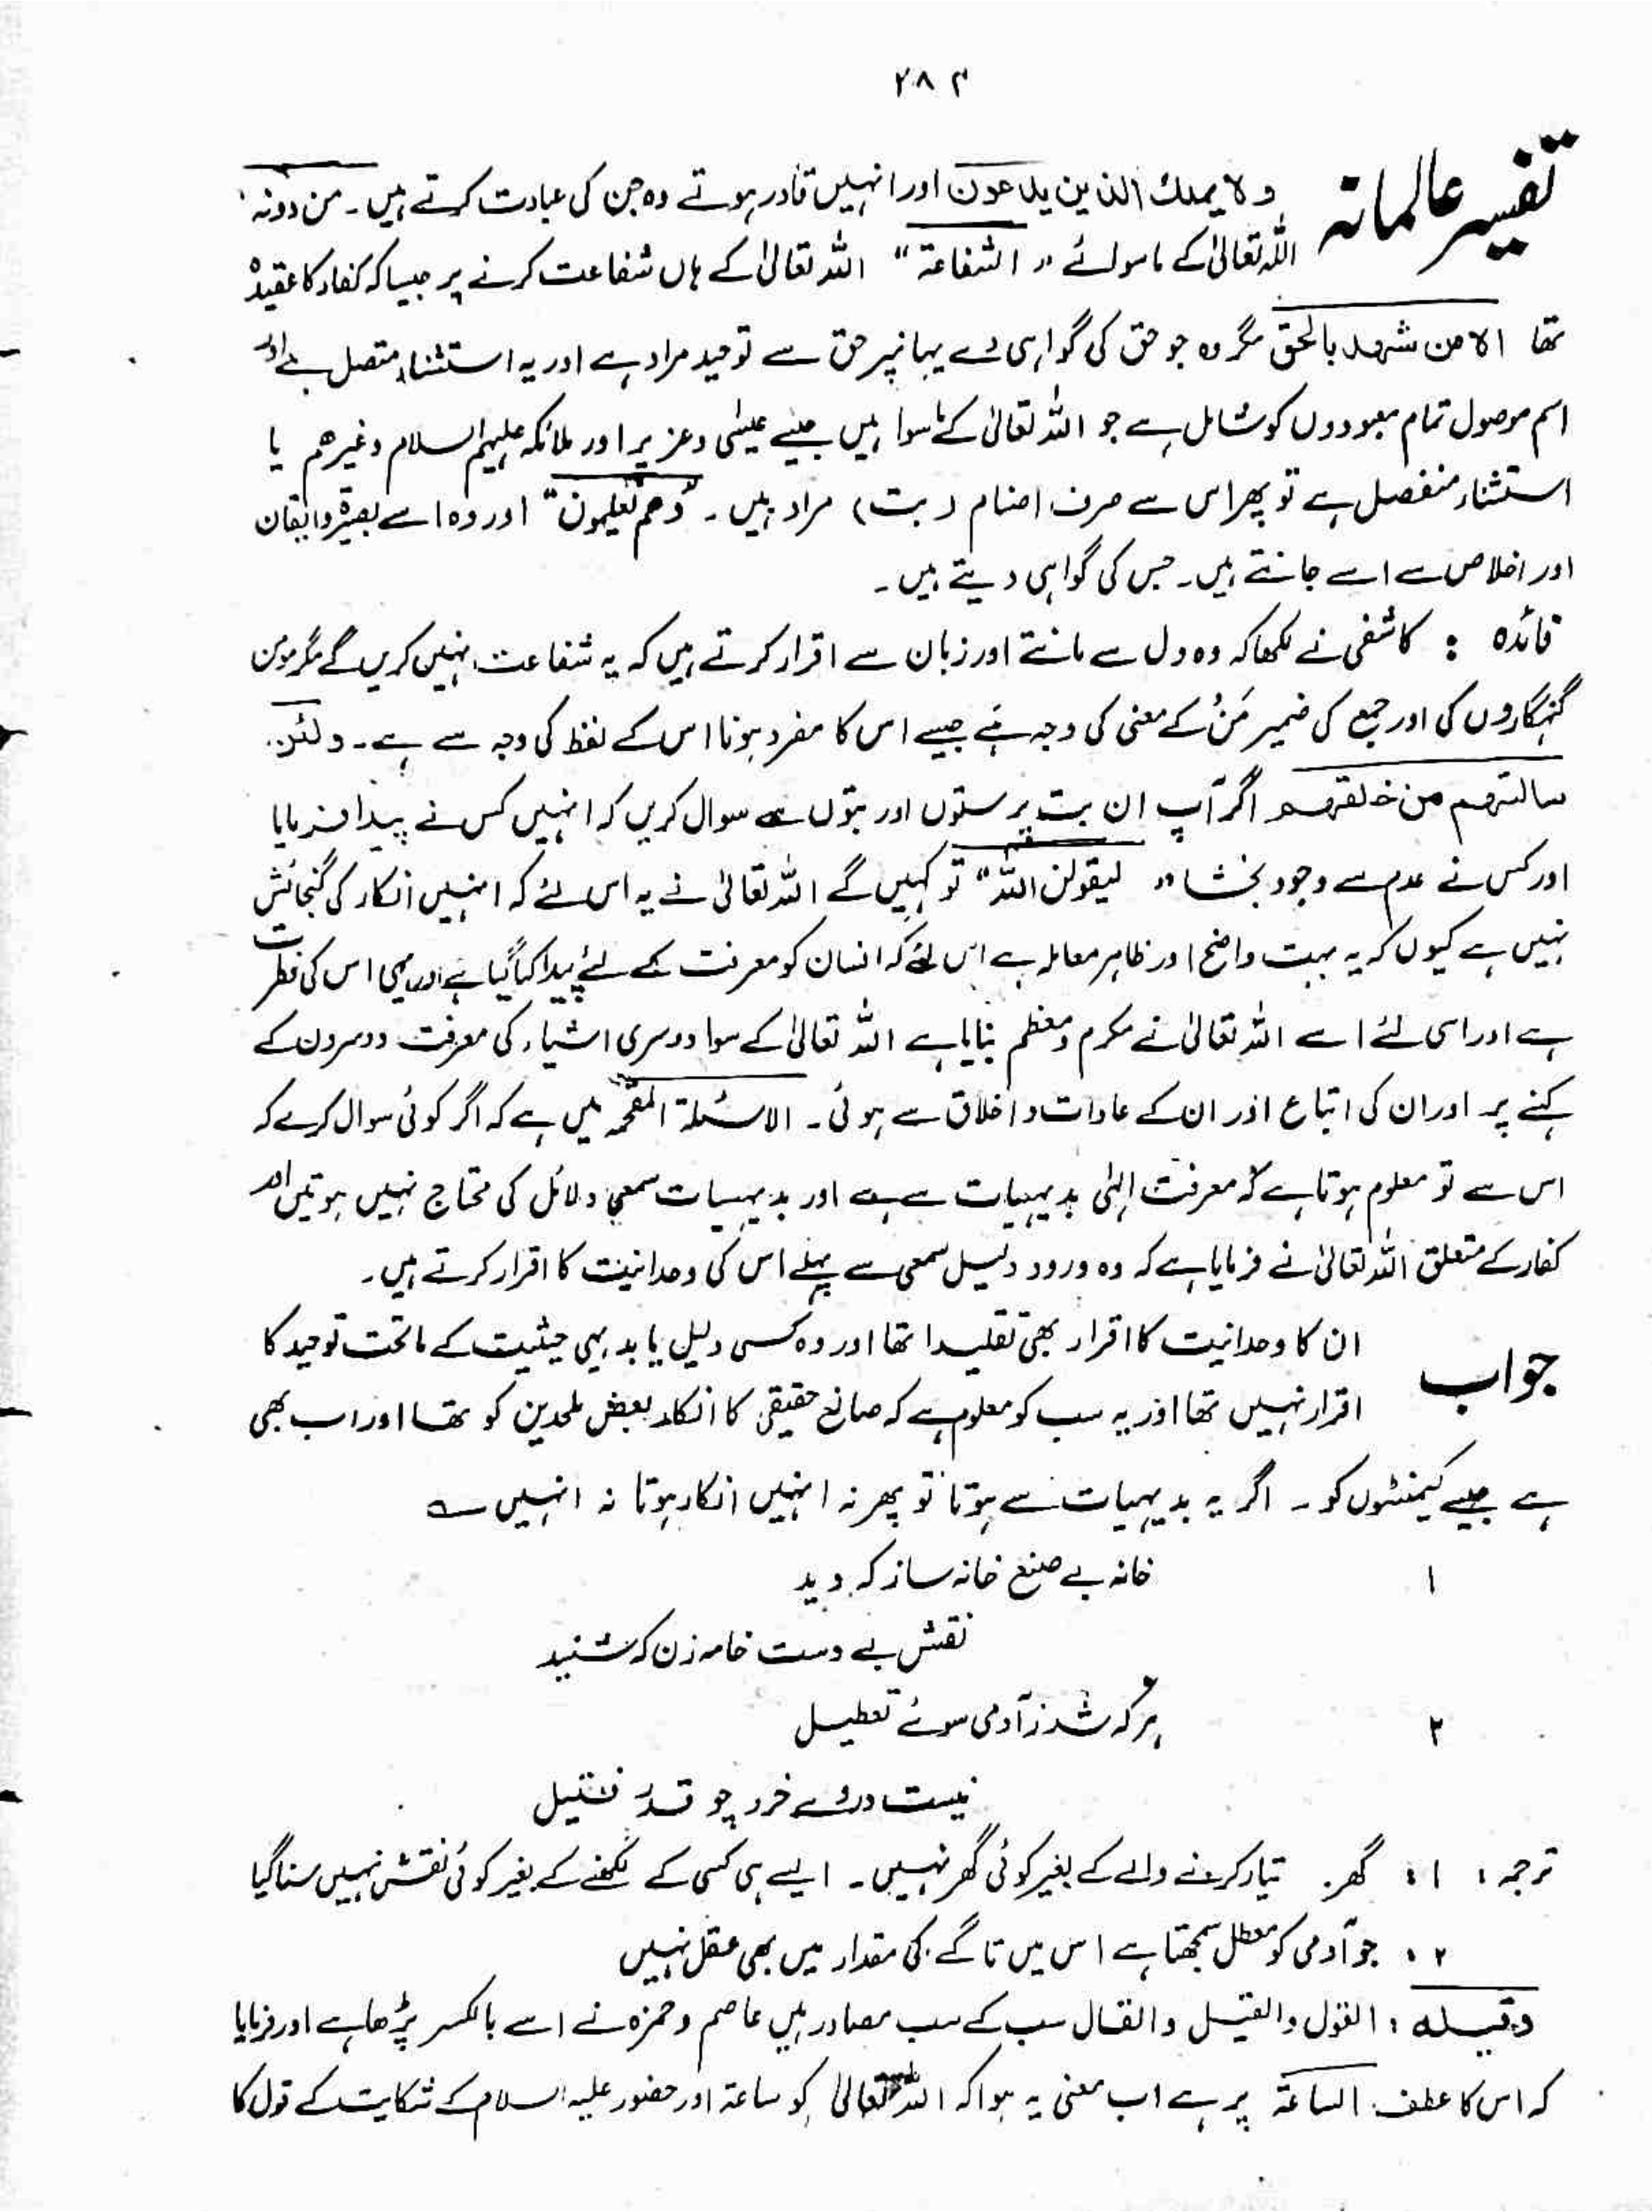 ۲۸۴
تفسیر عالمانہ
ولا یملك الذین یدعون اور انہیں قادر ہوتے وہ جن کی عبادت کرتے ہیں۔ من دونہ
اللہ تعالیٰ کے ماسوائے " الشفاعۃ " اللہ تعالیٰ کے ہاں شفاعت کرنے پر جیسا کہ کفار کا عقیدہ
تھا الا من شہد بالحق مگر وہ جو حق کی گواہی دے یہانپر حق سے توحید مراد ہے اور یہ استثناء متصل ہے اور
اسم موصول تمام معبودوں کو شامل ہے جو اللہ تعالیٰ کے ماسوا ہیں جیسے عیسٰی و عزیر اور ملائکہ علیہم السلام وغیرھم یا
استثناء منفصل ہے تو پھر اس سے صرف اصنام (بت) مراد ہیں۔ "وھم یعلمون" اور وہ اسے بصیرۃ وایقان
اور اخلاص سے اسے جانتے ہیں۔ جس کی گواہی دیتے ہیں۔
فائدہ : کاشفی نے لکھا کہ وہ دل سے مانتے اور زبان سے اقرار کرتے ہیں کہ یہ شفاعت نہیں کریں گے مگر مومن
گنہگاروں کی اور جمع کی ضمیر مَنْ کے معنی کی وجہ ہے جیسے اس کا مفرد ہونا اس کے لفظ کی وجہ سے ہے۔ ولئن
سالتہم من خلقہم اگر آپ ان بت پرستوں اور بتوں سے سوال کریں کہ انہیں کس نے پیدا فرمایا
اور کس نے عدم سے وجود بخشا " لیقولن اللہ " تو کہیں گے اللہ تعالیٰ نے یہ اس لئے کہ انہیں انکار کی گنجائش
نہیں ہے کیوں کہ یہ بہت واضح اور ظاہر معاملہ ہے اس لئے کہ انسان کو معرفت کے لئے پیدا کیا گیا ہے اور یہی اس کی فطرت
ہے اور اسی لئے اسے اللہ تعالیٰ نے مکرم و معظم بنایا ہے اللہ تعالیٰ کے سوا دوسری اشیاء کی معرفت دوسروں کے
کہنے پر اور ان کی اتباع اور ان کے عادات و اخلاق سے ہوئی۔ الاسئلۃ المقحمہ میں ہے کہ اگر کوئی سوال کرے کہ
اس سے تو معلوم ہوتا ہے کہ معرفت الہٰی بدیہیات سے ہے اور بدیہیات سمعی دلائل کی محتاج نہیں ہوتیں اور
کفار کے متعلق اللہ تعالیٰ نے فرمایا ہے کہ وہ ورود دلیل سمعی سے پہلے اس کی وحدانیت کا اقرار کرتے ہیں۔
جواب
ان کا وحدانیت کا اقرار بھی تقلیدا تھا اور وہ کسی دلیل یا بدیہی حیثیت کے ماتحت توحید کا
اقرار نہیں تھا اور یہ سب کو معلوم ہے کہ صانع حقیقی کا انکار بعض ملحدین کو تھا اور اب بھی
ہے جیسے کیمنسٹوں کو۔ اگر یہ بدیہیات سے ہوتا تو پھر نہ انہیں انکار ہوتا نہ انہیں ؎
۱ خانہ بے صنع خانہ ساز کہ دید
نقش بے دست خامہ زن کہ شنید
۲ ہر کہ شد ز آدمی سوئے تعطیل
نیست در وے خرد چو قدر فتیل
ترجمہ : ۱ : گھر تیار کرنے والے کے بغیر کوئی گھر نہیں۔ ایسے ہی کسی کے لکھنے کے بغیر کوئی نقش نہیں سنا گیا
۲ : جو آدمی کو معطل سمجھتا ہے اس میں تاگے کی مقدار میں بھی عقل نہیں
وقیلہ : القول والقیل والقال سب کے سب مصادر ہیں عاصم و حمزہ نے اسے بالکسر پڑھا ہے اور فرمایا
کہ اس کا عطف الساعۃ پر ہے اب معنی یہ ہوا کہ اللہ تعالیٰ کو ساعۃ اور حضور علیہ السلام کے شکایت کے قول کا